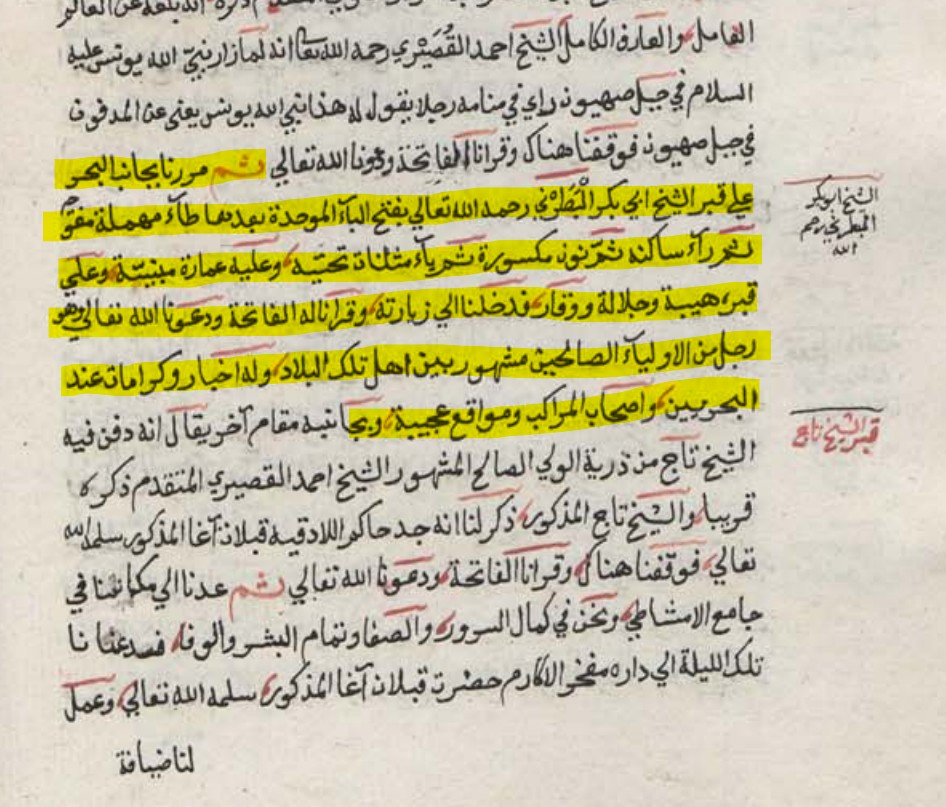 العامل والعارف الكامل الشيخ احمد القُصَيْري رحمه الله تعا انه لما زار نبيّ الله يونس عليه
السلام في جبل صهيون راي في منامه رجلا يقول له هذا نبي الله يونس يعني عن المدفون
في جبل صهيون فوقفنا هناك وقرانا الفاتحة ودعونا الله تعالي ثم مررنا بجانب البحر
علي قبر الشيخ ابي بكر البَطَرْني رحمه الله تعالي بفتح الباء الموحدة بعدها طآء مهملة مفتوحة
ثم رآء ساكنة ثم نون مكسورة ثم يآء مثلثات تحتية وعليه عمارة مبنيّة وعلي
قبره هيبة وجلالة ووقار فدخلنا الي زيارته وقرانا له الفاتحة ودعونا الله تعالي وهو
رجل من الاوليآء الصالحين مشهور بين اهل تلك البلاد وله اخبار وكرامات عند
البحريين واصحاب المراكب ومواقع عجيبة وبجانبه مقام آخر يقال انه دفن فيه
الشيخ تاج من ذرية الولي الصالح المشهور الشيخ احمد القصيري المتقدم ذكره
قريبا والشيخ تاج المذكور ذكر لنا انه جد حاكم اللادقية قبلان آغا المذكور سلمه الله
تعالي فوقفنا هناك وقرانا الفاتحة ودعونا الله تعالي ثم عدنا الي مكاننا في
جامع الامشاطي ونحن في كمال السرور والصفا وتمام البشر والوفا فدعانا
تلك الليلة الي داره مفخر الاكارم حضرت قبلان آغا المذكور سلمه الله تعالي وعمل
لنا ضيافة
الشيخ ابو بكر
البطرني رحمه
الله
قبر الشيخ تاج